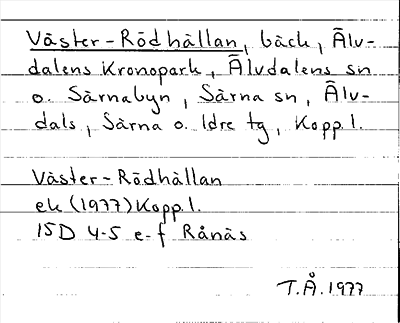 Väster-Rödhällan, bäck, Älv-
dalens Kronopark, Älvdalens sn
o. Särnabyn, Särna sn, Älv-
dals, Särna o. Idre tg, Kopp.l.
Väster-Rödhällan
ek (1977) Kopp.l.
15D 4-5 e-f Rånäs
T.Å. 1977